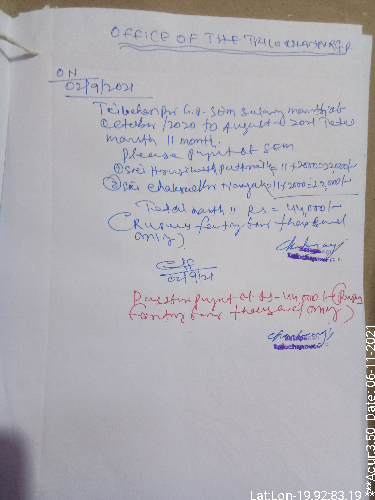 OFFICE OF THE TRILOCHANPUR G.P
ON
02/9/2021
Trilochanpur G.P. SEM Salary month of
October/2020 to August-2021 Total
month 11 month.
Please payment of SEM
① Sri = 11×2000=22,000/-
② Sri Chakradhar Nayak = 11×2000=22,000/-
Total month 11 Rs = 44,000/-
(Rupees fourty four thousand
only)
02/9/21
Passed payment of Rs-44,000/- (Rupees
fourty four thousand only)
***Acur:3.50 Date: 06-11-2021
Lat:Lon-19.92:83.19